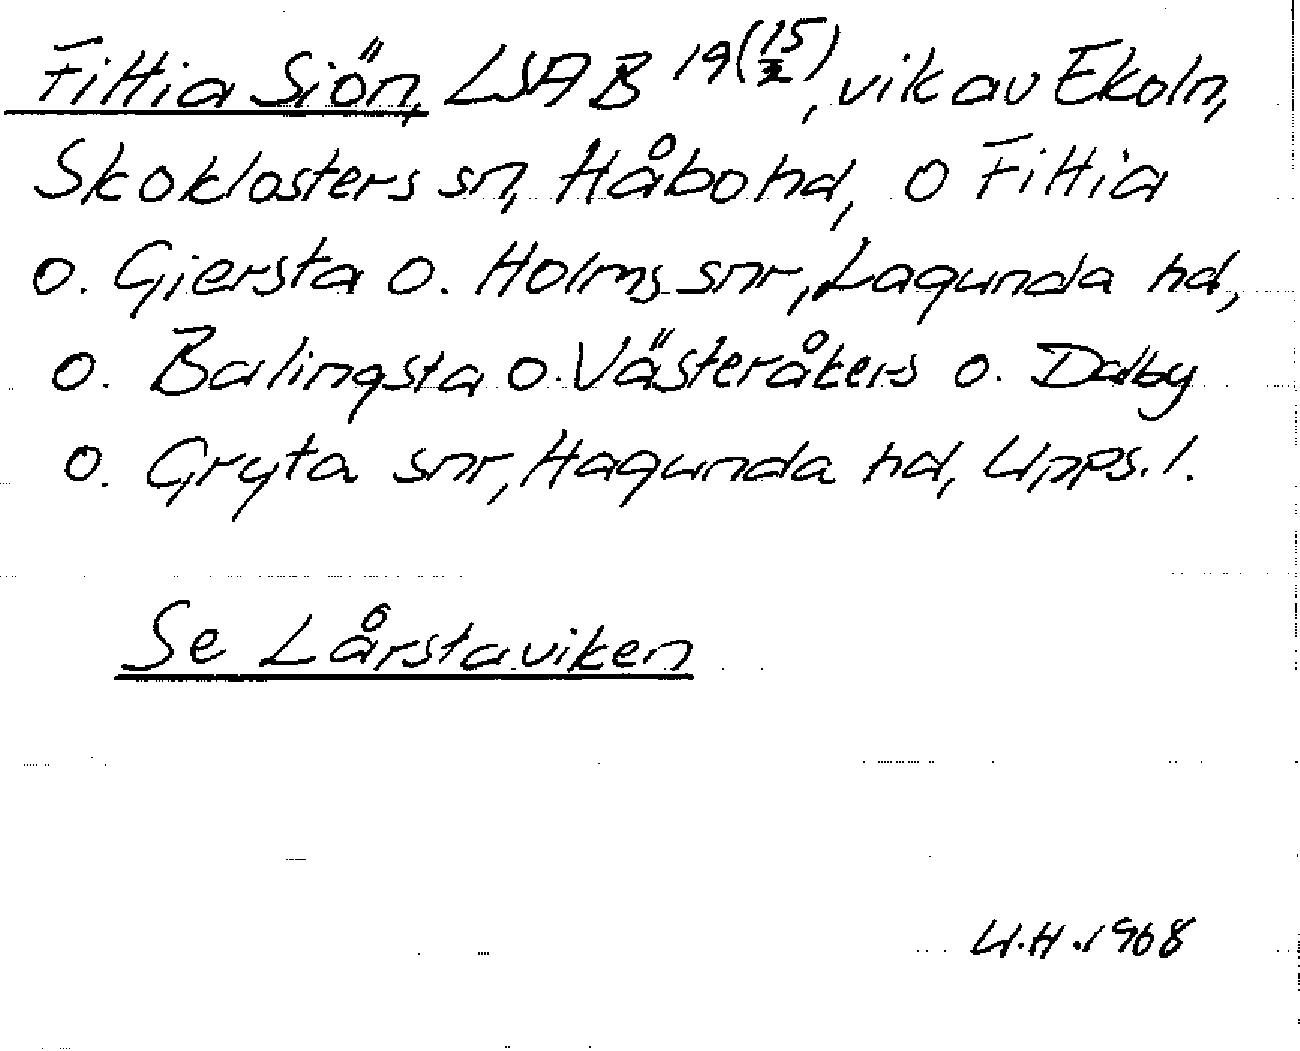 Fittia Siön, LSA B 19(15/2), vik av Ekoln,
Skoklosters sn, Håbo hd, o Fittia
o. Giersta o. Holms snr, Lagunda hd,
o. Balingsta o. Västeråkers o. Dalby
o. Gryta snr, Hagunda hd, Upps. l.
Se Lårstaviken
U.H. 1968